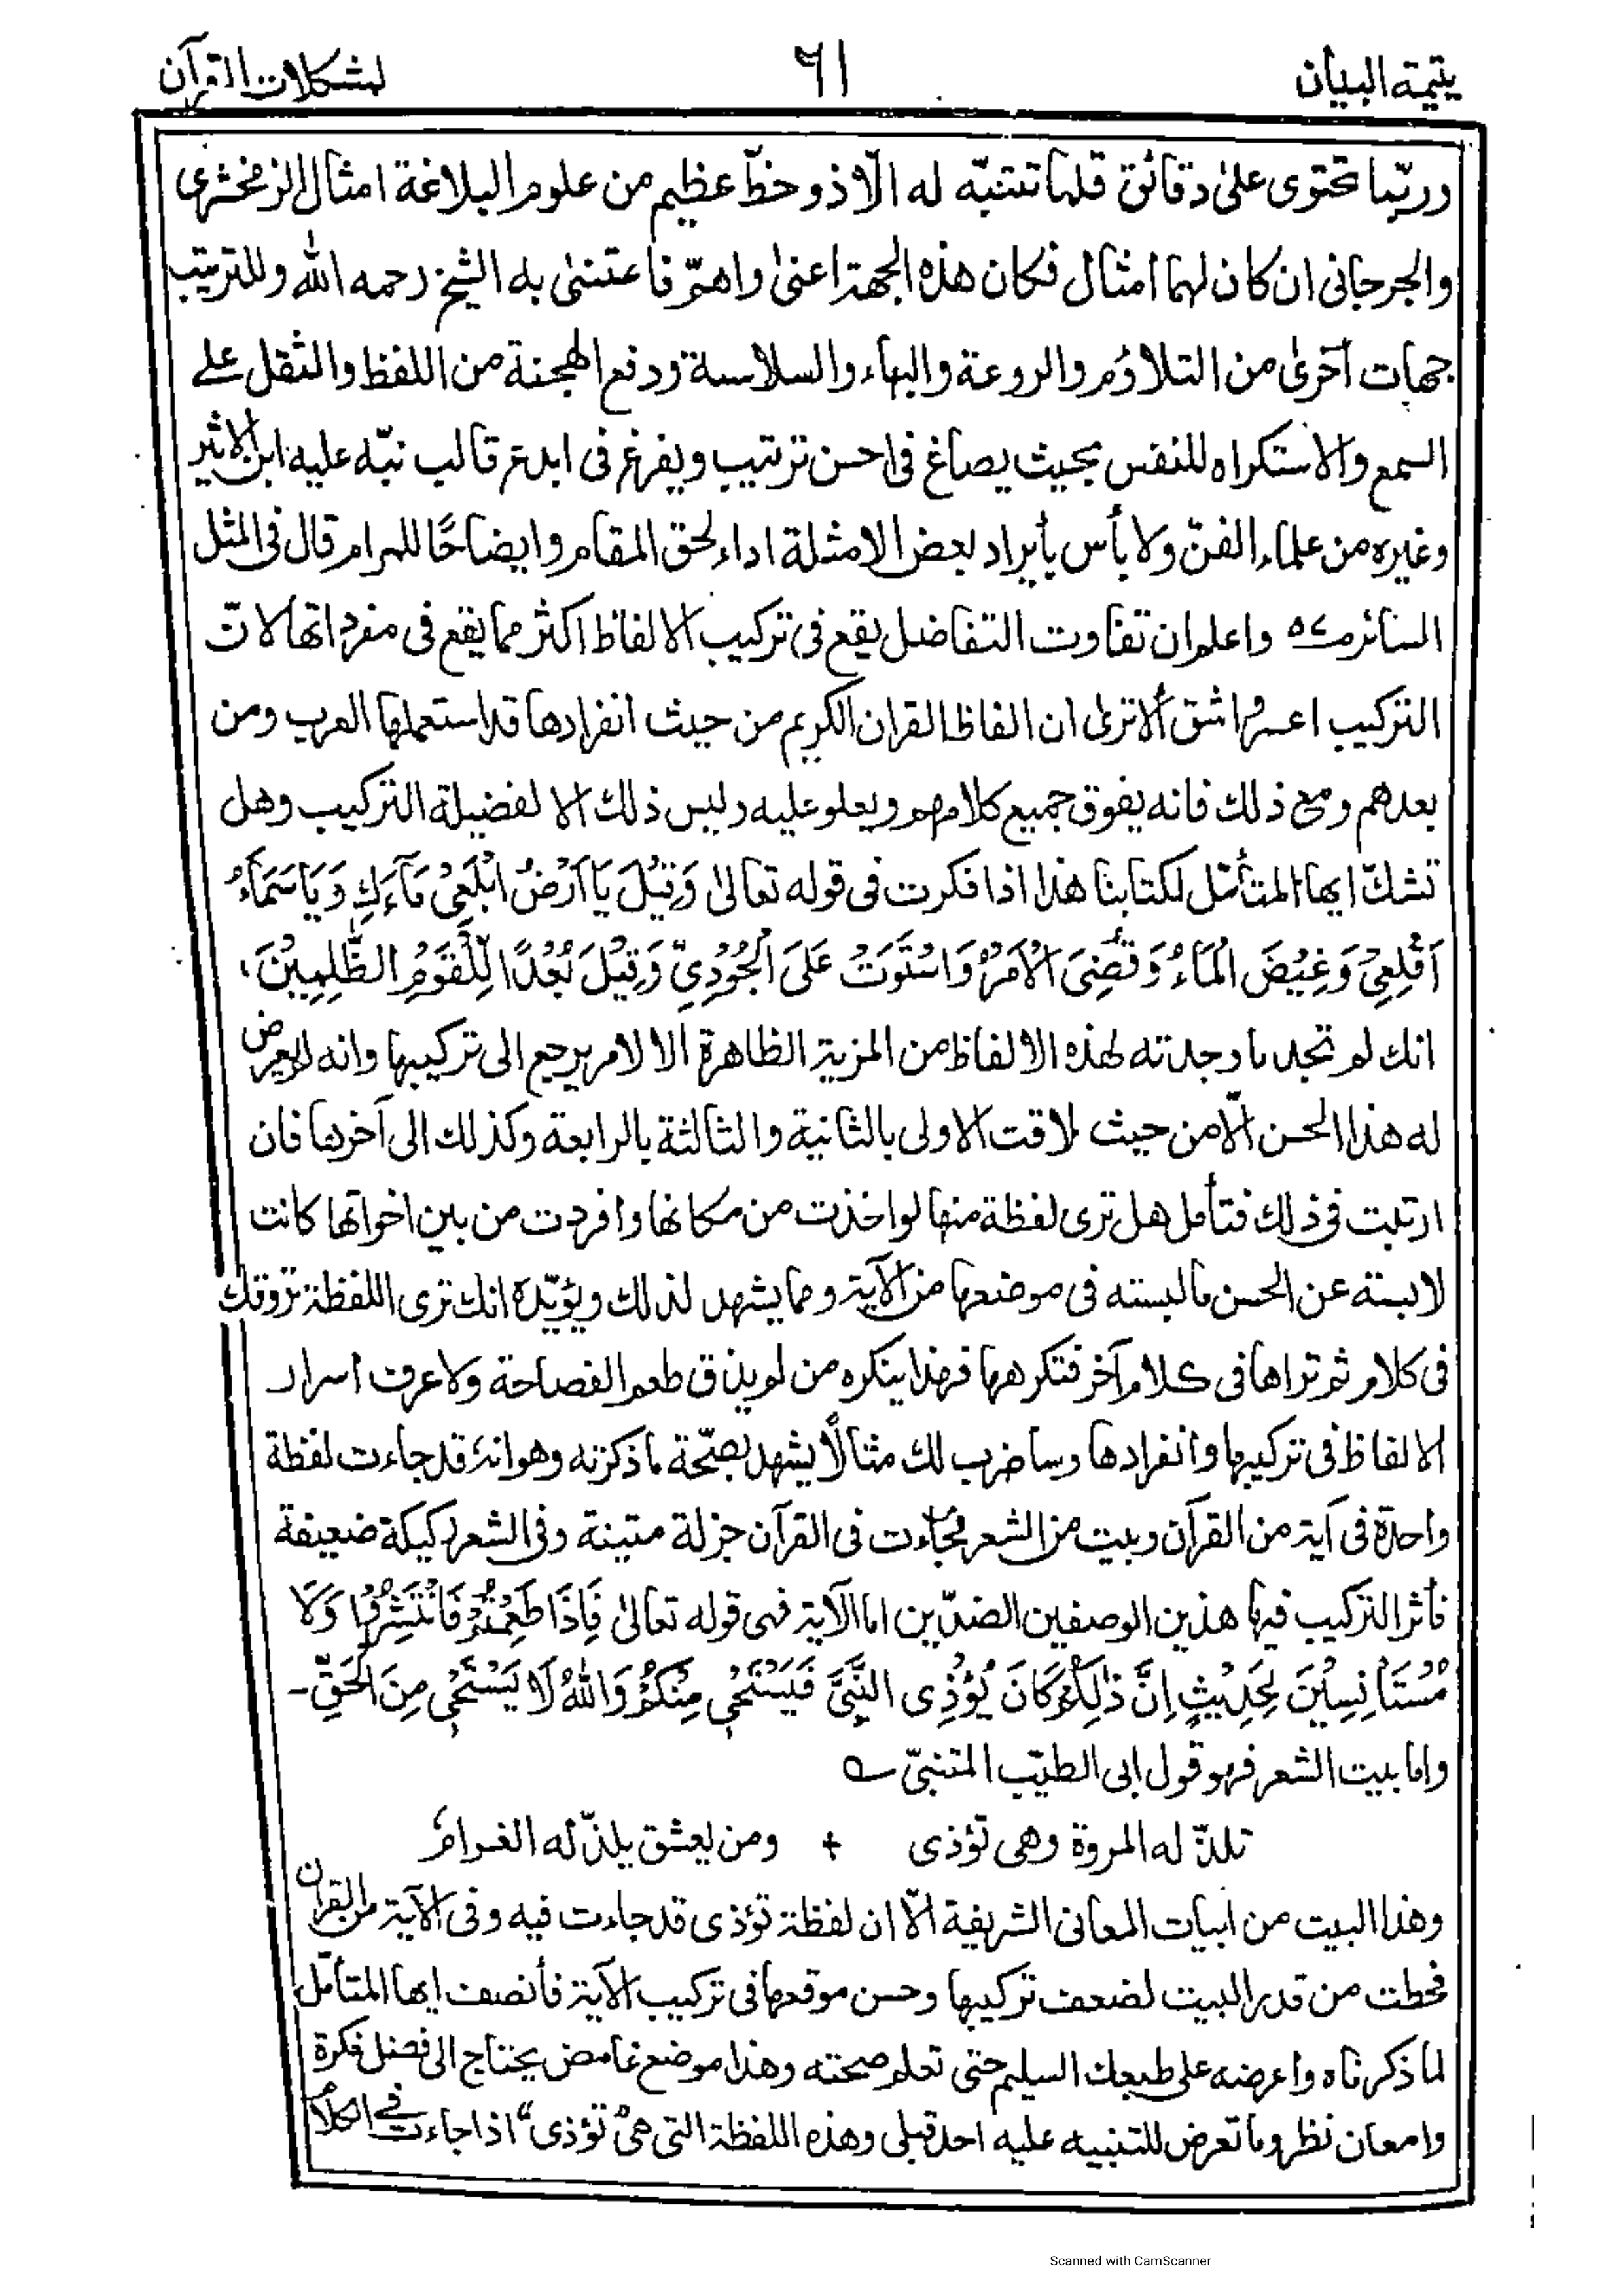 يتيمة البيان ٦١ لمشكلات القرآن
وربّما تحتوى على دقائق قلما تتنبّه له الّا ذو حظّ عظيم من علوم البلاغة امثال الزمخشرى
والجرجانى ان كان لهما امثال فكان هذه الجهة اعنىٰ واهمّ فاعتنىٰ به الشيخ رحمه الله وللترتيب
جهات أخرىٰ من التلاؤم والروعة والبهاء والسلاسة ودفع الهجنة من اللفظ والثقل على
السمع والاستكراه للنفس بحيث يصاغ فى احسن ترتيب ويفرغ فى ابدع قالب نبّه عليه ابن الاثير
وغيره من علماء الفنّ ولا بأس بأيراد بعض الامثلة اداء لحق المقام وايضاحًا للمرام قال فى المثل
السائر ص٥٧ واعلم ان تفاوت التفاضل يقع فى تركيب الالفاظ اكثر مما يقع فى مفرداتها لانّ
التركيب اعسر واشق ألا ترىٰ ان الفاظ القران الكريم من حيث انفرادها قد استعملها العرب ومن
بعدهم ومع ذلك فانه يفوق جميع كلامهم ويعلو عليه وليس ذلك الا لفضيلة التركيب وهل
تشكّ ايها المتأمّل لكتابنا هذا اذا فكرت فى قوله تعالىٰ وَقِيْلَ يَا اَرْضُ ابْلَعِىْ مَآءَكِ وَيَا سَمَآءُ
اَقْلِعِىْ وَغِيْضَ الْمَاءُ وَقُضِىَ الْاَمْرُ وَاسْتَوَتْ عَلَى الْجُوْدِيِّ وَقِيْلَ بُعْدًا لِّلْقَوْمِ الظّٰلِمِيْنَ،
انك لم تجد ما وجدته لهذه الالفاظ من المزية الظاهرة الا لامر يرجع الى تركيبها وانه لم يعرض
له هذا الحسن الّا من حيث لاقت الاولى بالثانية والثالثة بالرابعة وكذلك الى آخرها فان
ارتبت فى ذلك فتأمل هل ترى لفظة منها لو اخذت من مكانها وافردت من بين اخواتها كانت
لابسة عن الحسن ما لبسته فى موضعها من الآية ومما يشهد لذلك ويؤيّده انك ترى اللفظة تروقك
فى كلام ثم تراها فى كلام آخر فتكرهها فهذا ينكره من لم يذق طعم الفصاحة ولا عرف اسرار
الالفاظ فى تركيبها وانفرادها وساضرب لك مثالًا يشهد بصحّة ما ذكرته وهو انه قد جاءت لفظة
واحدة فى آية من القرآن وبيت من الشعر فجاءت فى القرآن جزلة متينة وفى الشعر ركيكة ضعيفة
فأثر التركيب فيها هذين الوصفين الضدّين اما الآية فهى قوله تعالىٰ فَاِذَا طَعِمْتُمْ فَانْتَشِرُوْا وَلَا
مُسْتَأْنِسِيْنَ لِحَدِيْثٍ اِنَّ ذٰلِكُمْ كَانَ يُؤْذِى النَّبِىَّ فَيَسْتَحْىٖ مِنْكُمْ وَاللهُ لَا يَسْتَحْىٖ مِنَ الْحَقِّ۔
واما بيت الشعر فهو قول ابى الطيّب المتنبىّ ؎
تلذّ له المروة وهى تؤذى + ومن يعشق يلذّ له الغرامُ
وهذا البيت من ابيات المعانى الشريفة الّا ان لفظة تؤذى قد جاءت فيه وفى الآية من القران
فحطت من قدر البيت لضعف تركيبها وحسن موقعها فى تركيب الآية فأنصف ايها المتأمّل
لما ذكرناه واعرضه على طبعك السليم حتى تعلم صحته وهذا موضع غامض يحتاج الى فضل فكرة
وامعان نظر وما تعرض للتنبيه عليه احد قبلى وهذه اللفظة التى هى "تؤذى" اذا جاءت فى الكلام
Scanned with CamScanner